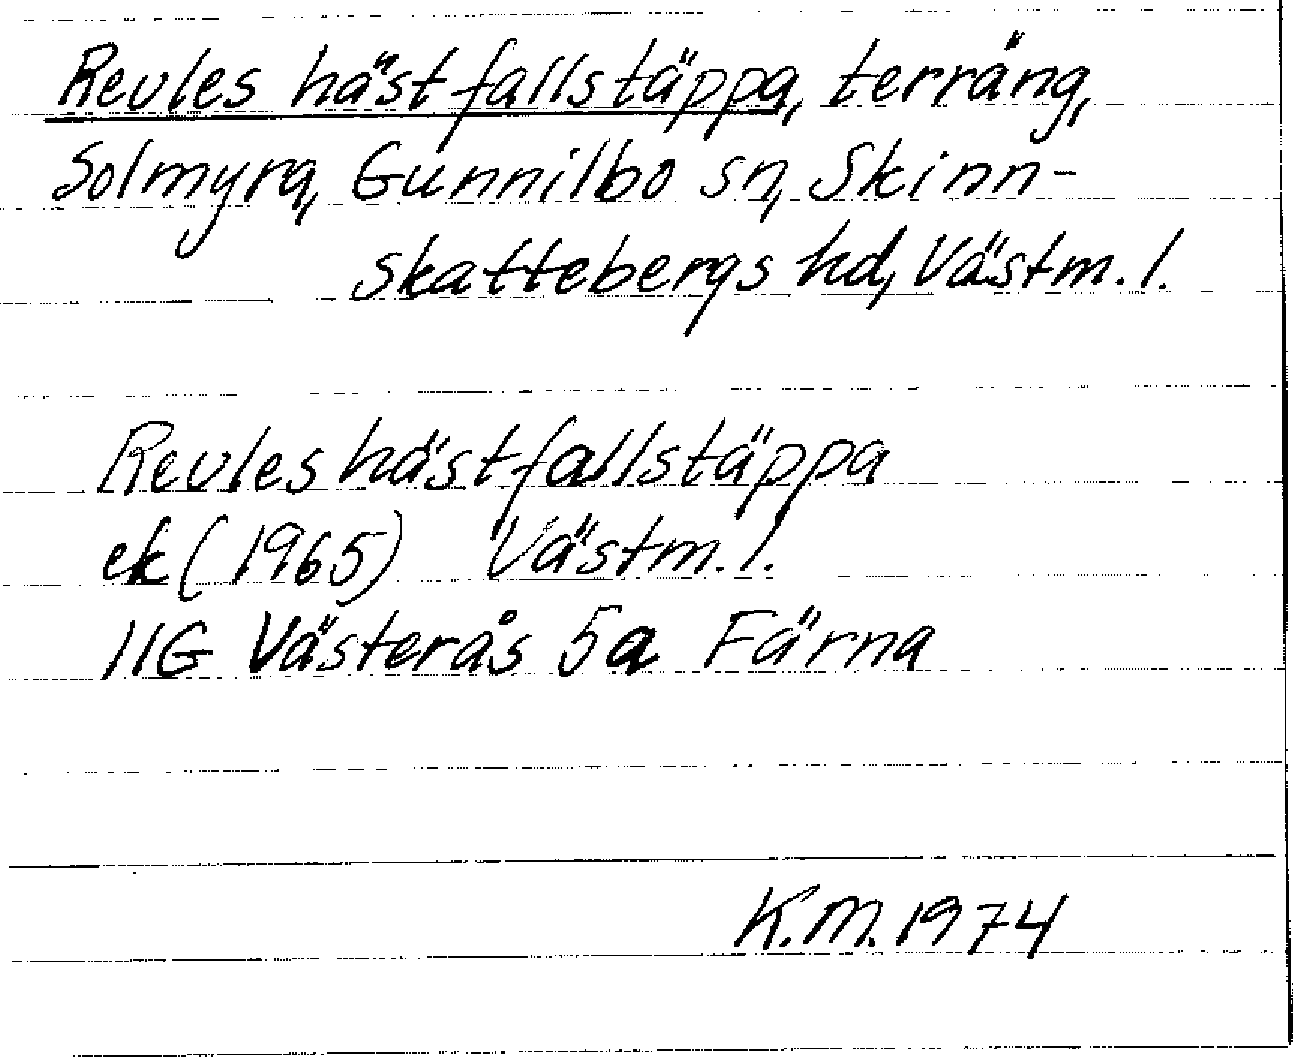 Revles hästfallstäppa, terräng,
Solmyra, Gunnilbo sn, Skinn-
skattebergs hd, Västm. l.
Revles hästfallstäppa
ek (1965) Västm. l.
11G Västerås 5a Färna
K.M. 1974